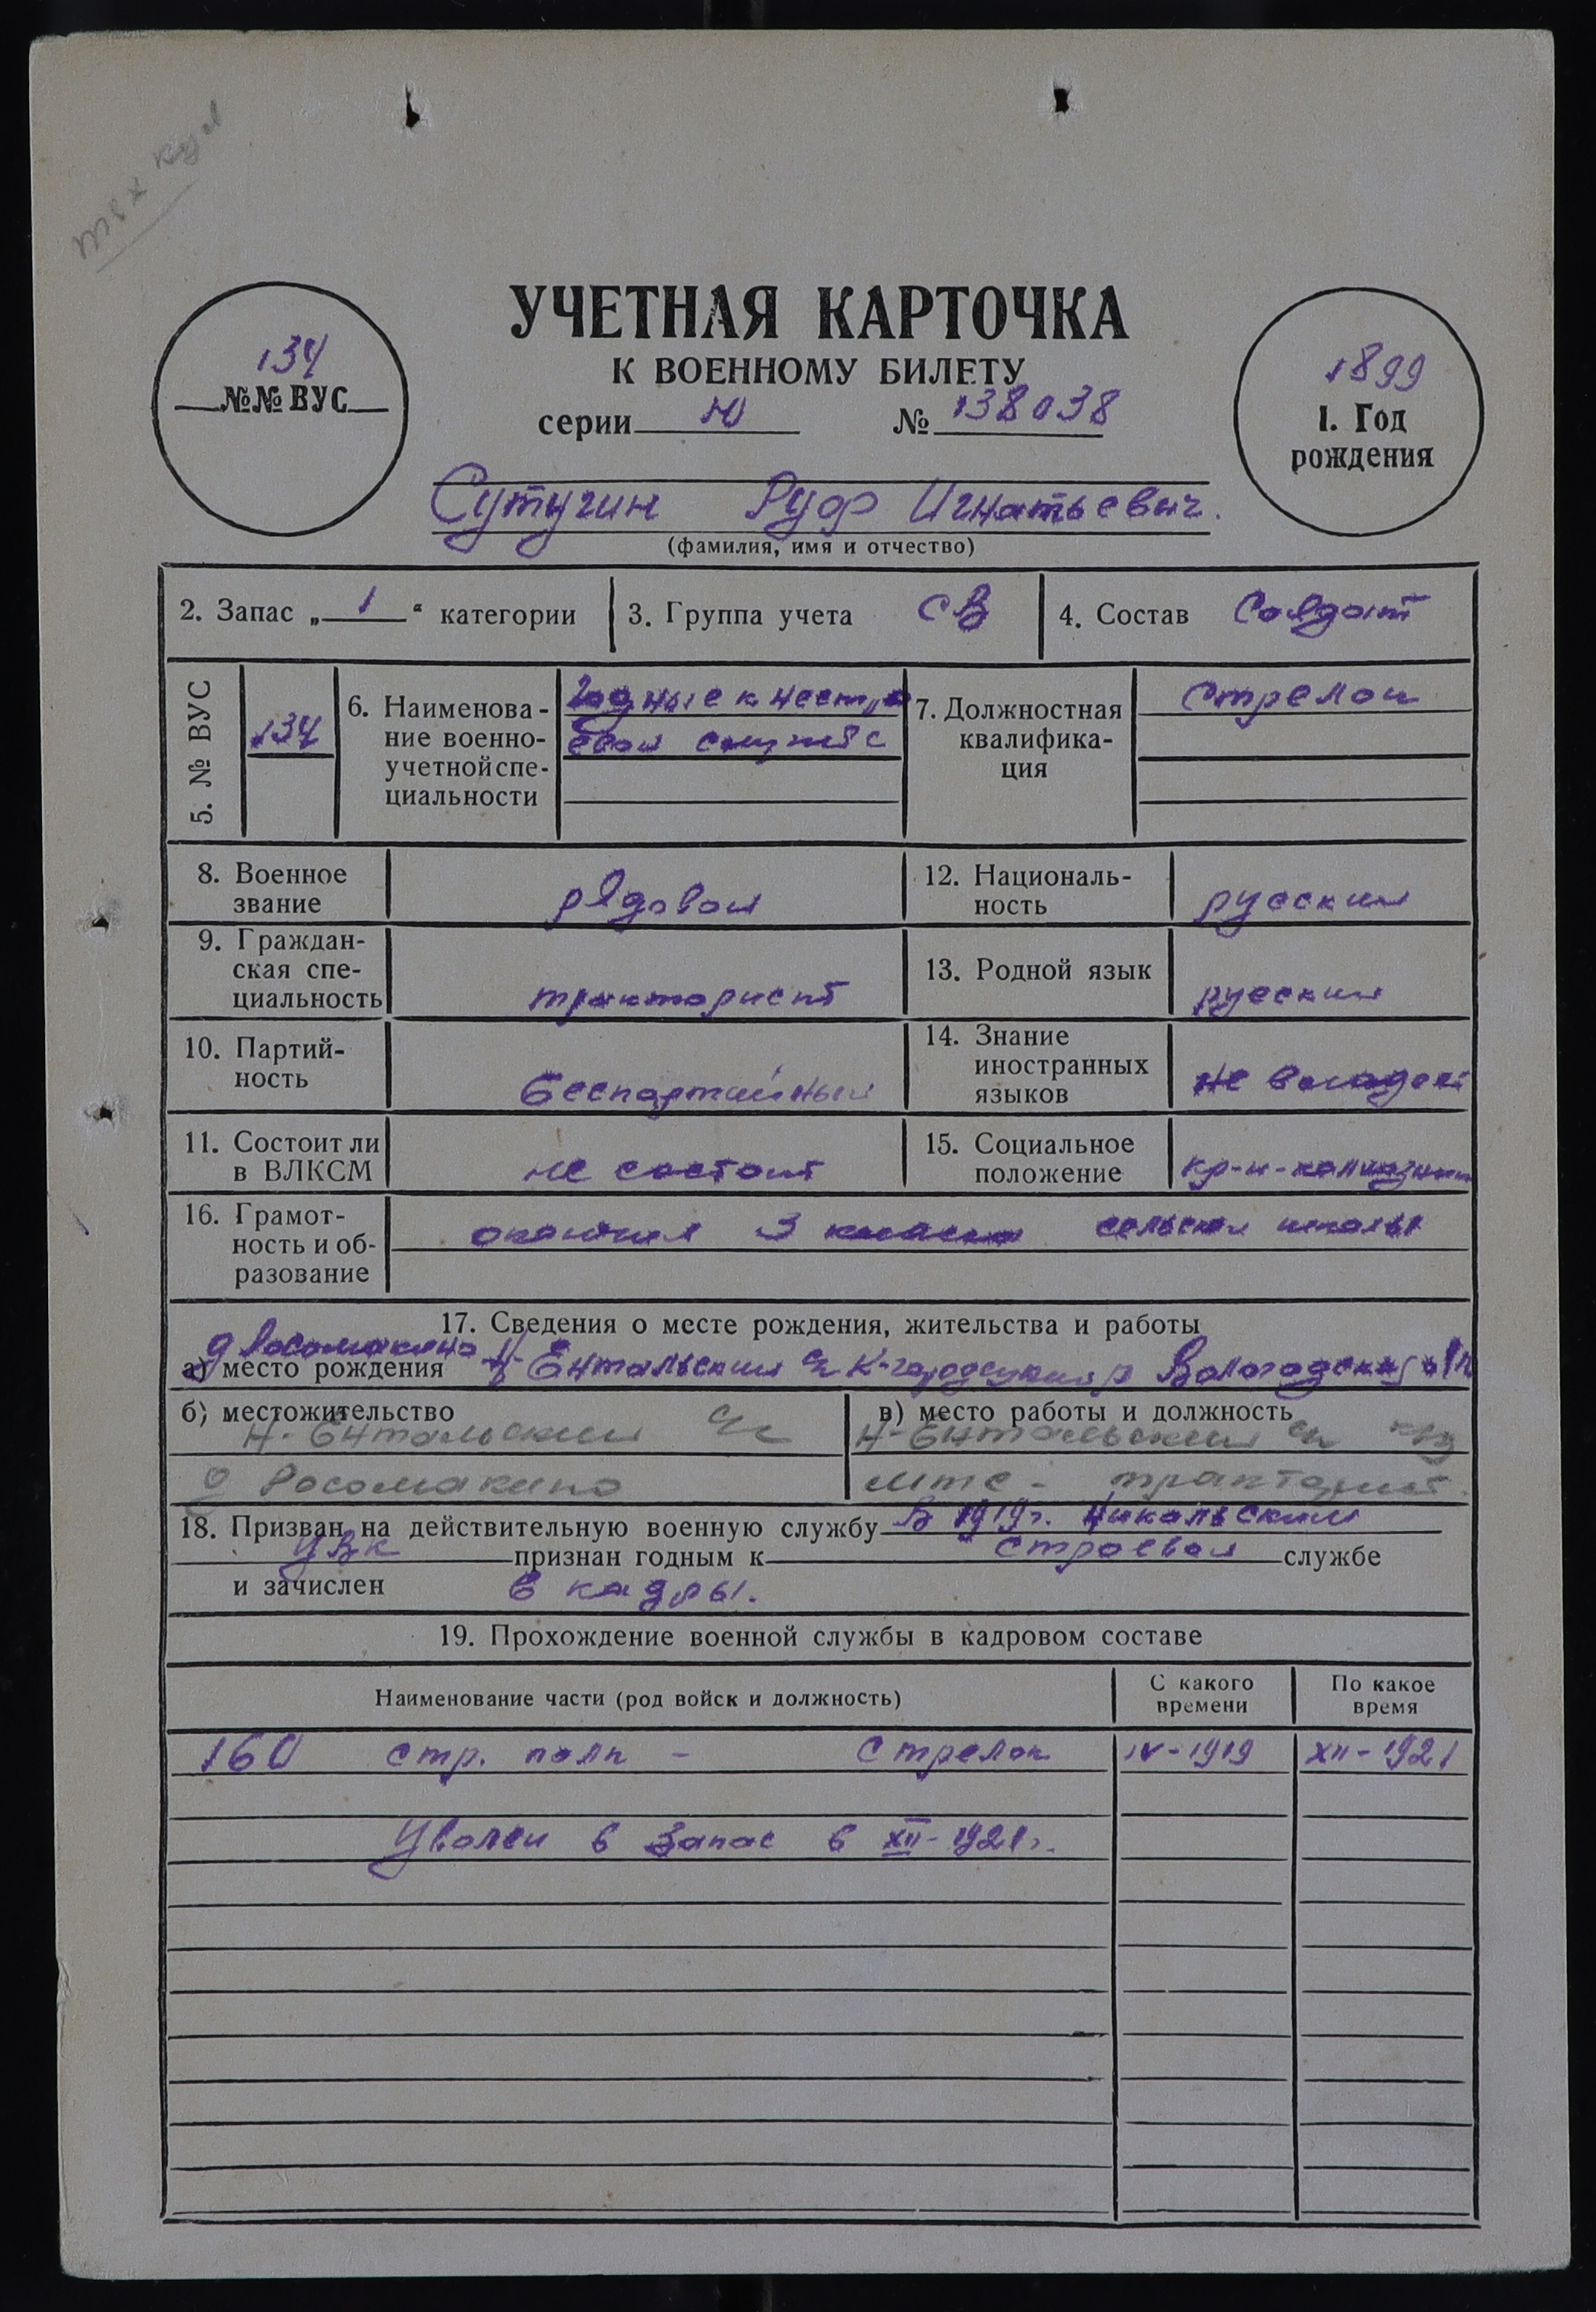 УЧЕТНАЯ КАРТОЧКА
К ВОЕННОМУ БИЛЕТУ
134
№№ ВУС
серии Ю № 138038
1899
1. Год
рождения
Сутугин Руф Игнатьевич.
(фамилия, имя и отчество)
2. Запас „ 1 “ категории
3. Группа учета СВ
4. Состав Солдат
5. № ВУС
134
6. Наименова-
ние военно-
учетной спе-
циальности
Годные к нестро
евой службе
7. Должностная
квалифика-
ция
Стрелок
8. Военное
звание
рядовой
12. Националь-
ность
русский
9. Граждан-
ская спе-
циальность
тракторист
13. Родной язык
русский
10. Партий-
ность
беспартийный
14. Знание
иностранных
языков
не владеет
11. Состоит ли
в ВЛКСМ
не состоит
15. Социальное
положение
кр-н-колхозник
16. Грамот-
ность и об-
разование
окончил 3 класса сельской школы
17. Сведения о месте рождения, жительства и работы
д Росомакино
а) место рождения Н-Ентальский с/с К-городецкий р Вологодской обл
б) местожительство
Н-Ентальский с/с
д Росомакино
в) место работы и должность
Н-Ентальский с/с
МТС - тракторист.
18. Призван на действительную военную службу В 1919г. Никольским
УВК признан годным к строевой службе
и зачислен в кадры.
19. Прохождение военной службы в кадровом составе
Наименование части (род войск и должность)
С какого
времени
По какое
время
160 стр. полк - стрелок IV-1919 XII-1921
Уволен в запас в XII-1921г.